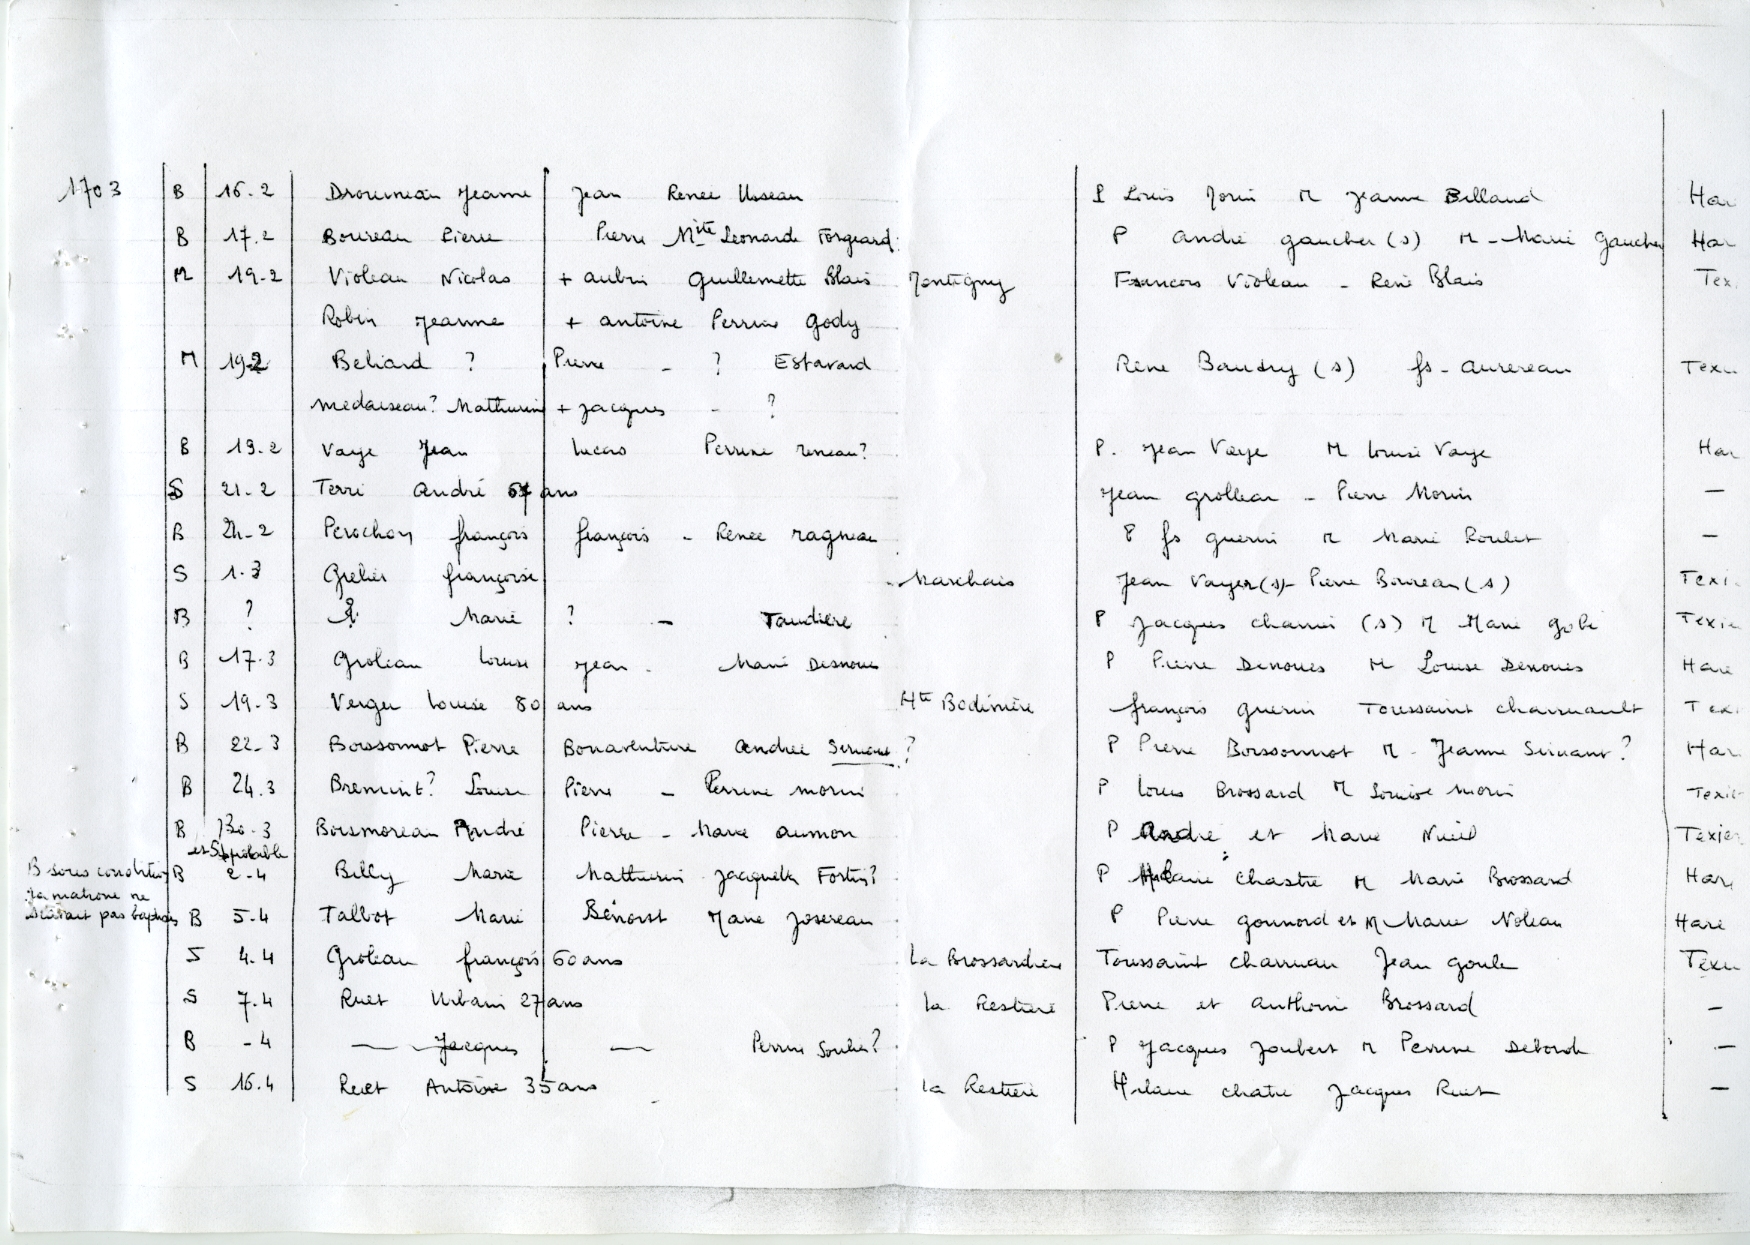 1703 B 16-2 Droumeau Jeanne Jean Renee Usseau P Louis Morin M Jeanne Billaud Har
B 17.2 Boureau Pierre Pierre Mite Leonarde Forgeard P andré gaucher (s) M - Marie Gaucher Har
M 19-2 Violeau Nicolas + aubin Guillemette Blais Montigny Francois Violeau - René Blais Tex
Robin Jeanne + antoine Perrine Gody
M 19-2 Beliard ? Pierre - ? Estavard René Baudry (s) fs - aurereau Texi
medaiseau? Mathurin + Jacques - ?
B 19.2 Vaye Jean Lucas Perrine reneau? P. Jean Vaye M Louise Vaye Har
S 21-2 Terri andré 67 ans Jean grolleau - Pierre Morin —
B 24-2 Perochon françois françois - Renee ragneau P fs guerin M Marie Roulet —
S 1.3 Grelier françoise Marchais Jean Vayer (s) - Pierre Boureau (s) Texi
B ? ? Marie ? - Taudiere P Jacques charrui (s) M Marie gobi Texie
B 17.3 Groleau Louise Jean - Marie Desnoues P Pierre Denoues M Louise Denoues Hare
S 19.3 Verger Louise 80 ans Hte Bodinière françois guerin Toussaint charruault Texi
B 22-3 Boissonnot Pierre Bonaventure andrée Servant ? P Pierre Boissonnot M - Jeanne Servant ? Har
B 24.3 Bremint? Louise Pierre - Perrine morin P Louis Brossard M Louise morin Texie
B 30-3 Boismoreau André Pierre - Marie aumon P André et Marie Nueil Texier
et S probable
B sous condition B 2-4 Billy Marie Mathurin Jacquette Fortin? P Hilaire Chastre M Marie Brossard Har
la matrone ne
sachant pas baptiser B 5-4 Talbot Marie Benoist Marie Josereau P Pierre gonnord et M Marie Noleau Hare
S 4.4 Groleau françois 60 ans La Brossardiere Toussaint Charruau Jean goule Texi
S 7.4 Ruet Urbain 27 ans la Restiere Pierre et anthoine Brossard —
B -4 — Jacques — Perrine Soulier? P Jacques Joubert M Perrine Deborde —
S 16.4 Ruet Antoine 35 ans la Restiere Hilaire chatre Jacques Ruet —